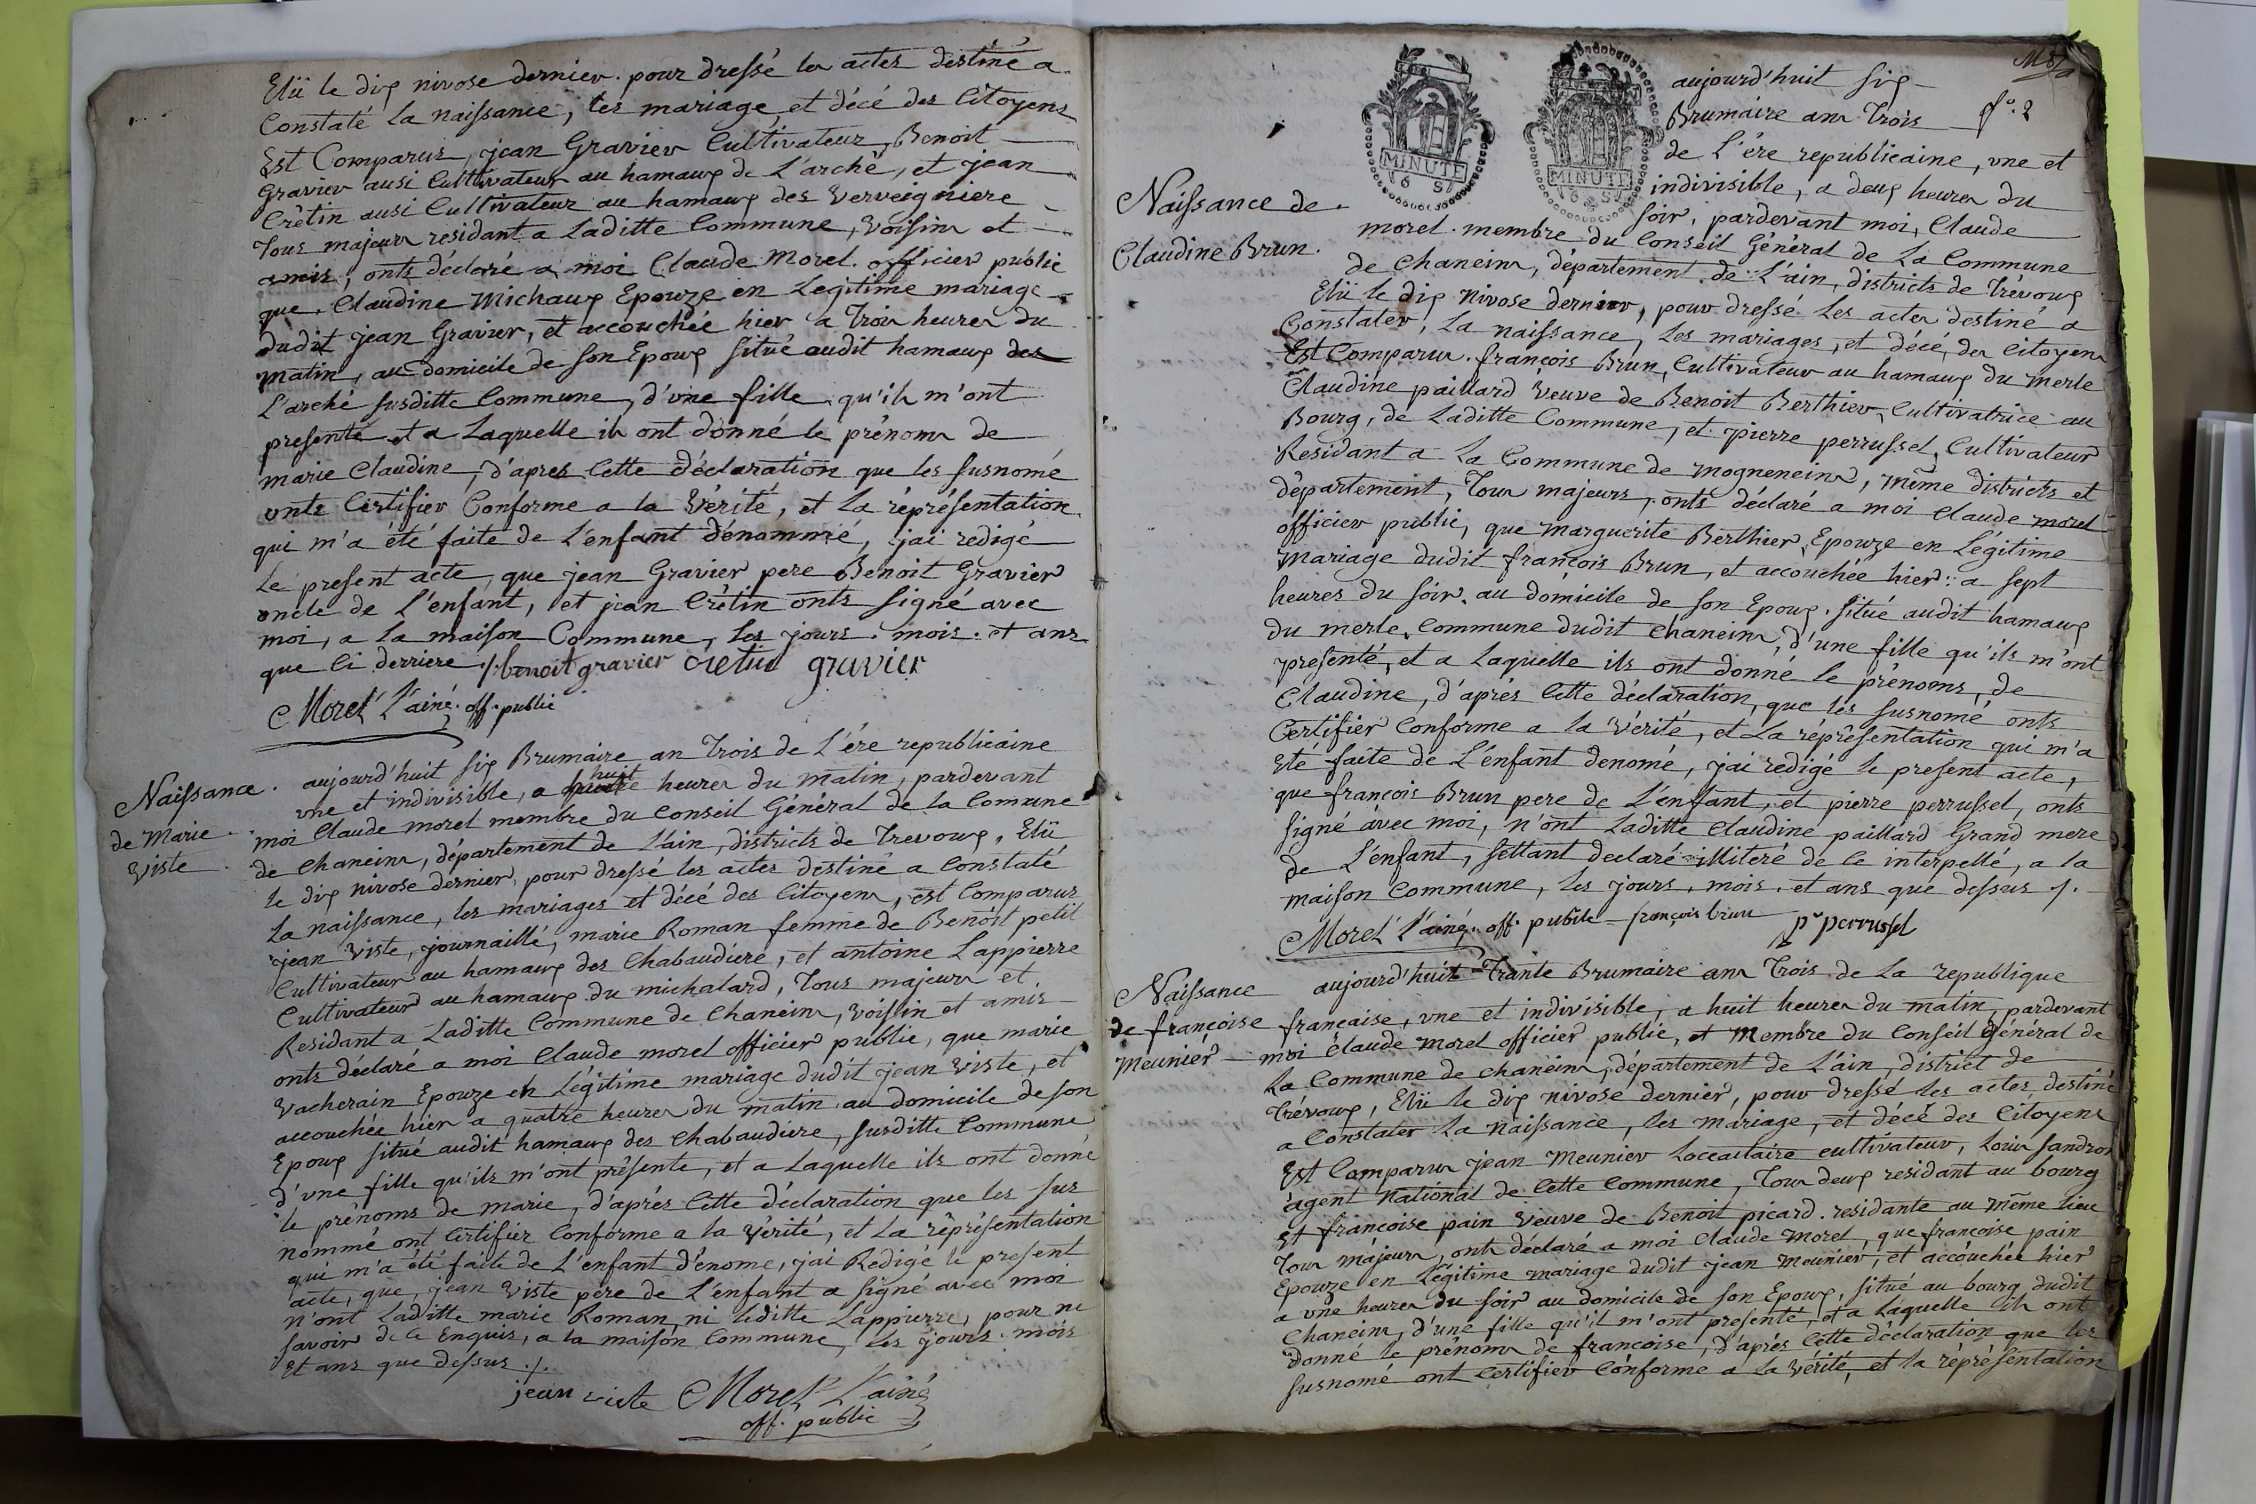 Elü le dix nivose dernier. pour dressé les actes destiné a
Constaté la naissance, les mariage et décé des Citoyens
Est Comparus, jean Gravier Cultivateur, Benoit
Gravier ausi Cultivateur au hamaux de L'arche, et jean
Crétin ausi Cultivateur au hamaux des Verveigniere
Tous majeurs residant a Laditte Commune, Voisins et
amis, onts déclaré a moi Claude Morel. officier public
que, Claudine Michaux Epouze en Legitime mariage
dudit jean Gravier, et accouchée hier a Trois heures du
matin, au domicile de son Epoux situé audit hamaux des
L'arché susditte Commune, d'une fille qu'ils m'ont
presenté et a Laquelle ils ont donné le prénoms de
marie Claudine, d'apres Cette déclaration que les susnomé
onts Certifier Conforme a la Vérité, et La réprésentation
qui m'a été faite de L'enfant dénommé, jai redigé
Le present acte, que jean Gravier pere Benoit Gravier
oncle de L'enfant, et jean Crétin onts signé avec
moi, a la maison Commune, les jours. mois. et ans
que Ci derriere ./. benoit gravier cretin gravier
Morel L'ainé. off. public
Naissance.
de Marie
Viste
aujourd'huit six Brumaire an Trois de L'ére republicaine
une et indivisible, a huit heures du matin, pardevant
moi Claude morel membre du Conseil Général de la Comune
de Chaneins, département de L'ain, districts de Trevoux, Elü
le dix nivose dernier, pour dressé les actes destiné a Constaté
La naissance, les mariages et décé des Citoyens, est Comparus
jean Viste, journaillé, marie Roman femme de Benoit petit
Cultivateur au hamaux des Chabaudiére, et antoine Lappierre
Cultivateur au hamaux du michalard, Tous majeurs et
Residant a Laditte Commune de Chaneins, Voissin et amis
onts déclaré a moi Claude morel officier public, que marie
Vacherain Epouze en Légitime mariage dudit jean Viste, et
accouchée hier a quatre heures du matin au domicile de son
Epoux situé audit hamaux des Chabaudiere, susditte Commune
d'une fille qu'ils m'ont présente, et a Laquelle ils ont donné
le prénoms de marie, d'aprés Cette déclaration que les sus
nommé ont Certifier Conforme a la Vérité, et La réprésentation
qui m'a été faite de L'enfant d'énome, jai Redigé le present
acte, que, jean Viste pere de L'enfant a signé avec moi
n'ont Laditte marie Roman, ni leditte Lappierre, pour ne
savoir de Ce Enquis, a la maison Commune, les jours. mois
et ans que dessus ./.
jean viste Morel L'ainé
off. public
fo. 2
MINUTE
MINUTE
Naissance de
Claudine Brun.
aujourd'huit six
Brumaire ans Trois
de L'ére republicaine, une et
indivisible, a deux heures du
soir, pardevant moi, Claude
morel. membre du Conseil Général de La Commune
de Chaneins, département de L'ain, districts de Trévoux
Elü le dix Nivose dernier, pour dressé Les actes destiné a
Constater, La naissance, Les mariages, et décé, des Citoyens
Est Comparus. françois Brun, Cultivateur au hamaux du merle
Claudine paillard Veuve de Benoit Berthier, Cultivatrice au
Bourg, de Laditte Commune, et pierre perrussel, Cultivateur
Residant a La Commune de mogneneins, même districts et
département, Tous majeurs, onts déclaré a moi Claude morel
officier public, que marguerite Berthier, Epouze en Légitime
Mariage dudit françois Brun, et accouchée hier a sept
heures du soir, au dómicile de son Epoux. situé audit hamaux
du merle, Commune dudit Chaneins, d'une fille qu'ils m'ont
presenté, et a Laquelle ils ont donné le prénoms, de
Claudine, d'aprés Cette déclaration, que les susnomé onts
Certifier Conforme a la Vérité, et La réprésentation qui m'a
Eté faite de L'enfant denomé, jai redigé le present acte,
que françois Brun pere de L'enfant, et pierre perrussel, onts
signé avec moi, n'ont Laditte Claudine paillard Grand mere
de L'enfant, settant declaré illiteré de Ce interpellé, a la
maison Commune, les jours, mois. et ans que dessus ./.
Morel L'ainé. off. public françois brun pre perrussel
Naissance
de françoise
Meunier
aujourd'huit Trante Brumaire ans Trois de La republique
française, une et indivisible, a huit heures du matin, pardevant
moi Claude Morel officier public, et Membre du Conseil Général de
La Commune de chaneins, département de L'ain, district de
Trévoux, Elü le dix nivose dernier, pour dressé les actes destiné
a Constater La Naissance, les mariage, et décé des Citoyens
Est Comparus jean Meunier Loccaitaire cultivateur, Louis Sandron
agent National de Cette Commune, Tous deux residant au bourg
Et françoise pain Veuve de Benoit picard. residante au même lieu
Tous májeurs, onts déclaré a moi Claude Morel, que françoise pain
Epouze en Légitime mariage dudit jean Meunier, et accouchée hier
a une heures du soir au domicile de son Epoux, situé au bourg dudit
Chaneins, d'une fille qu'il m'ont presenté, et a Laquelle ils ont
donné le prénoms de françoise, d'aprés Cette déclaration que les
susnomé ont Certifier Conforme a la Vérité, et la réprésentation